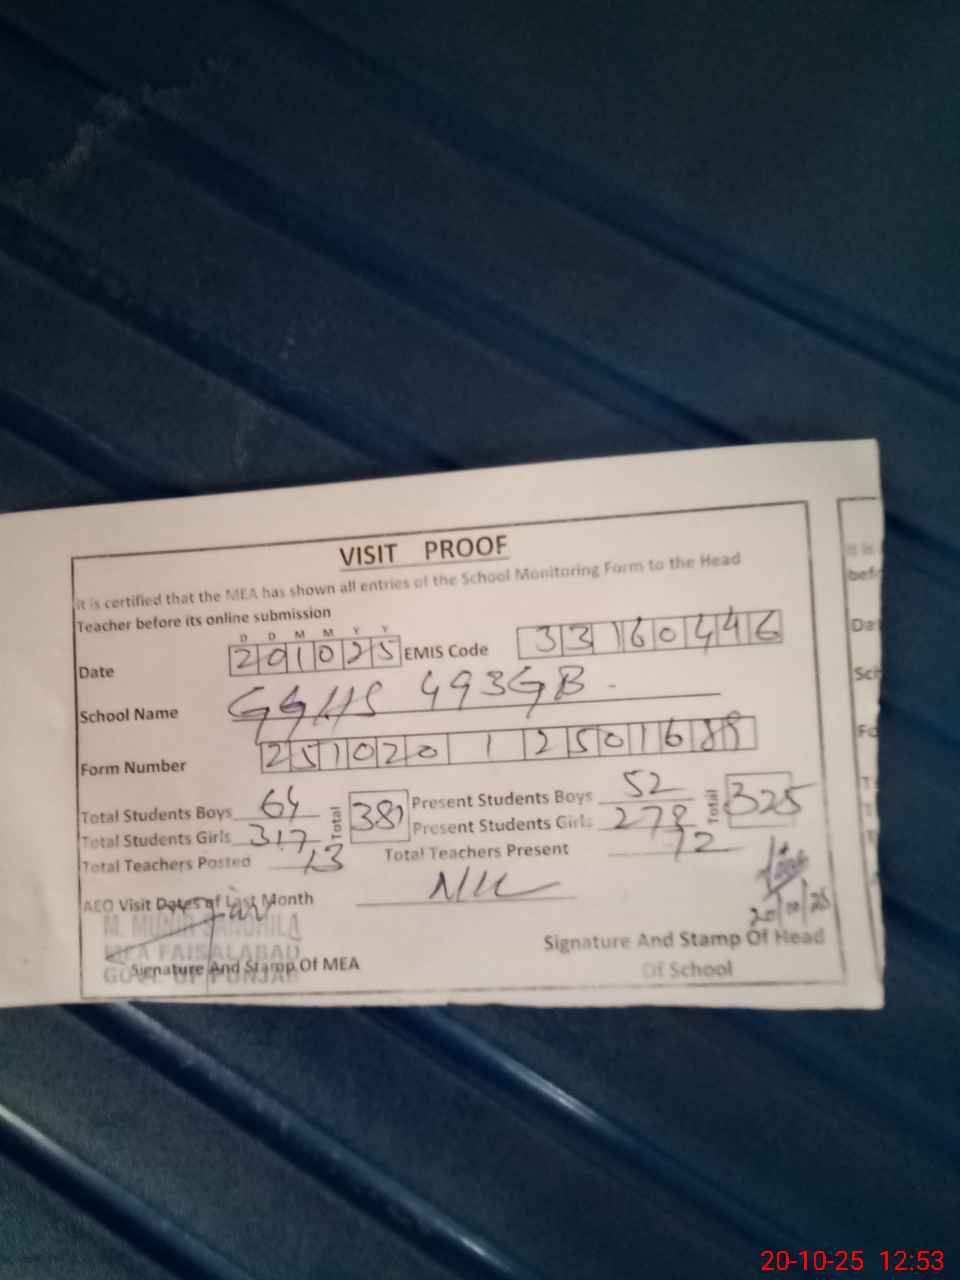 VISIT PROOF
it is certified that the MEA has shown all entries of the School Monitoring Form to the Head
Teacher before its online submission
D D M M Y Y
Date 201025 EMIS Code 33160446
School Name GGHS 493GB
Form Number 251020 1 2501688
Total Students Boys 64 Total 381 Present Students Boys 52 Total 325
Total Students Girls 317 Present Students Girls 273
Total Teachers Posted 13 Total Teachers Present 12
AEO Visit Dates of Last Month Nil
20/10/25
M. MUNIR
MEA FAISALABAD
GOVT. OF PUNJAB
Signature And Stamp Of MEA
Signature And Stamp Of Head
Of School
it is
befo
Da
Sch
Fo
20-10-25 12:53